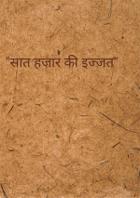 "सात हज़ार की इज्ज़त"